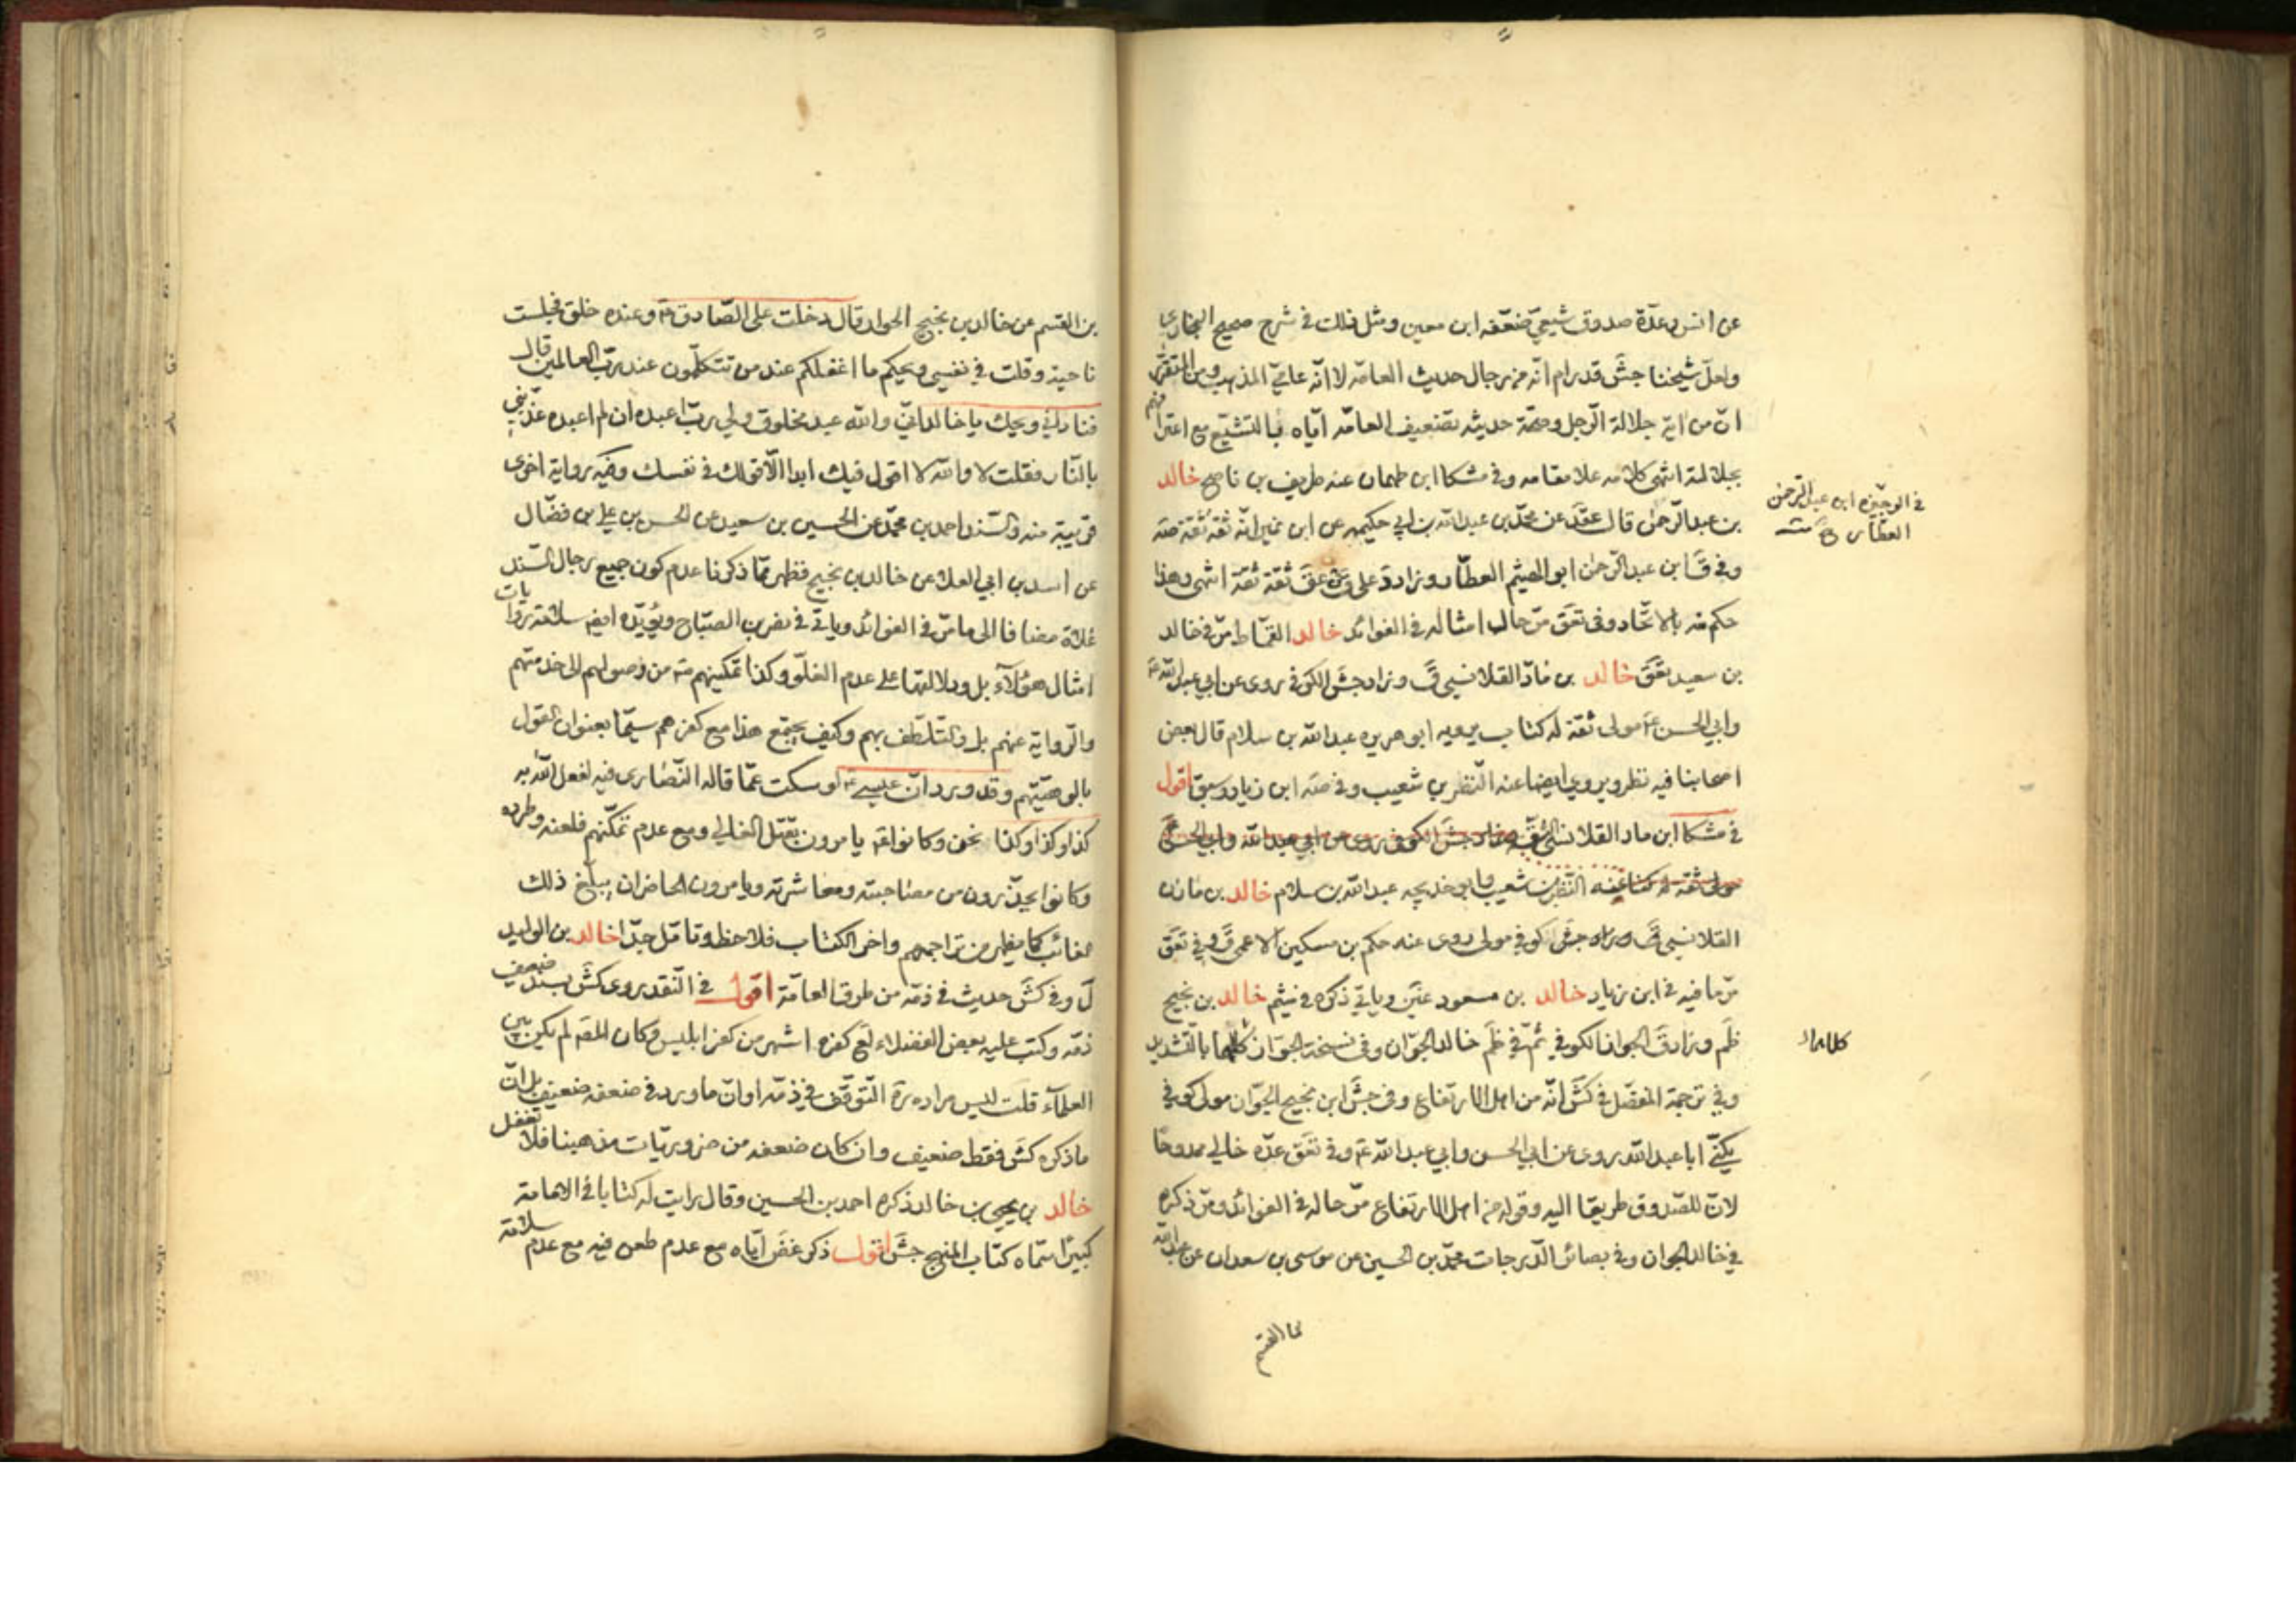 عن انس وعدّة صدوق شيعيّ ضعّفه ابن معين ومثل ذلك في شرح صحيح البخاري
ولعلّ شيخنا جش قد رام انّه من رجال حديث العامّه لا انّه عاميّ المذهب ومن
انّ من اية جلالة الرّجل وصحّة حديثه تضعيف العامّه ايّاه بالتشيّع مع اعترا
بجلالته انتهى كلامه علا مقامه وفي مشكا ابن طهمان عنه طريف بن ناصح خالد
بن عبد الرّحمن قال عقد عن محمّد بن عبد الله بن ابي حكيمه عن ابن نمير انّه ثقة ثقة صه
وفي ق ابن عبد الرحمن ابو الهيثم العطّار وزاد د على عق ثقة ثقة انتهى وهذا
حكم منه بالاتّحاد وفي تعق مرّ حال امثاله في الفوائد خالد القمّاط مرّ في خالد
بن سعيد تعق خالد بن مادّ القلانسي ق وزاد جش الكوفي روى عن ابي عبد الله ع
وابي الحسن ع مولى ثقة له كتاب يرويه ابو هريره عبد الله بن سلام قال بعض
اصحابنا فيه نظر ويروي ايضا عنه النّضر بن شعيب وفي صه ابن زياد وسبق اقول
في مشكا ابن ماد القلانسي الثقة جش الكوفي روى عن ابي عبد الله وابي الحسن
مولى ثقة له كتاب عنه النّضر بن شعيب وابو خديجه عبد الله بن سلام خالد بن مازن
القلانسي ق وزاد جش كوفي مولى روى عنه حكم بن مسكين الاعمى ق وفي تعق
مرّ ما فيه في ابن زياد خالد بن مسعود عنبر وياتي ذكره في نيثم خالد بن نجيح
ظم وزاد ق الجوان الكوفي ثمّ في ظم خالد الجوّان وفي نسخة الجوّاز كلاهما بالتشديد
وفي ترجمة المفضّل في كش انّه من اهل الارتفاع وفي جش ابن نجيح الجوّان مولى كوفي
يكنّى ابا عبد الله روى عن ابي الحسن وابي عبد الله ع وفي تعق عدّه خالي ممدوحا
لانّ للصّدوق طريقا اليه وقوله من اهل الارتفاع مرّ حاله في الفوائد ومرّ ذكره
في خالد الجوان وفي بصائر الدّرجات محمّد بن الحسين عن موسى بن سعدان عن عبد الله
بن القسم
في الوجيزه ابن عبد الرّحمن
العطّار
كلاهما
بن القسم عن خالد بن نجيح الجواد قال دخلت على الصّادق ع وعنده خلق فجلست
ناحية وقلت في نفسي ويحكم ما اغفلكم عند من تتكلّمون عند ربّ العالمين قال
فناداني ويحك يا خالد انّي والله عبد مخلوق ولي ربّ اعبده ان لم اعبده عذّبني
بالنّار فقلت لا والله لا اقول فيك ابدا الّا قولك في نفسك وفيه رواية اخرى
قريبة منه والسّند احمد بن محمّد عن الحسين بن سعيد عن الحسن بن علي بن فضّال
عن اسد بن ابي العلا عن خالد بن نجيح فظهر ممّا ذكرنا عدم كون جميع رجال السّند
غلاة مضافا الى ما مرّ في الفوائد وياتي في نضر بن الصبّاح ويؤيّده ايضا سلامة روايات
امثال هؤلآء بل ودلالتها على عدم الغلوّ وكذا تمكينهم منه من وصولهم الى خدمتهم
والرّواية عنهم بل والتلطّف بهم وكيف يجتمع هذا مع كفرهم سيّما بعنوان القول
بالوهيّتهم وقد ورد انّ عيسى ع لو سكت عمّا قاله النّصارى فيه لفعل الله به
كذا وكذا وكذا نحن وكانوا يامرون بقتل الغالي ومع عدم تمكّنهم فلعنه وطرده
وكانوا يحذّرون من مصاحبته ومعاشرته ويامرون الحاضر ان يبلّغ ذلك
الغائب كما يظهر من تراجمهم واخر الكتاب فلاحظ وتامّل جدّا خالد بن الوليد
ل وفي كش حديث في ذمّه من طرق العامّة اقول في النّقد روى كش بسند ضعيف
ذمّه وكتب عليه بعض الفضلاء لع كفره اشهر من كفر ابليس وكان المقه لم يكن بين
العلمآء قلت ليس مراده ره التّوقّف في ذمّه او انّ ما ورد في ضعفه ضعيف بل انّ
ما ذكره كش فقط ضعيف وان كان ضعفه من ضروريّات مذهبنا فلا تغفل
خالد بن يحيى بن خالد ذكره احمد بن الحسين وقال رايت له كتابا في الامامة
كبيرا سمّاه كتاب المنهج جش اقول ذكر غض ايّاه مع عدم طعن فيه مع عدم سلامة